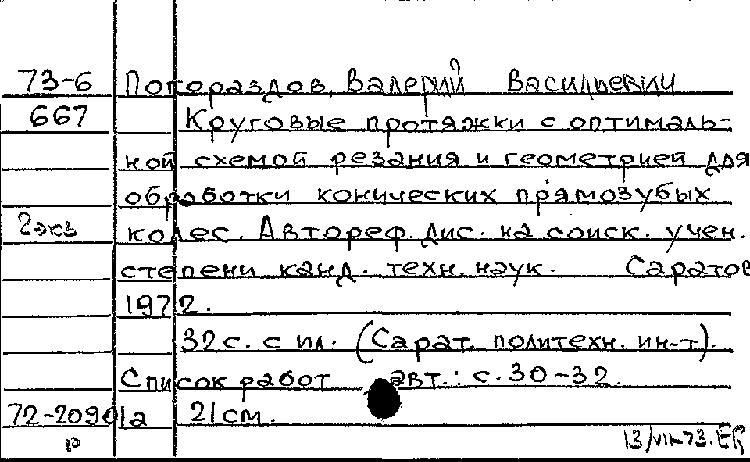 73-6 Погораздов, Валерий Васильевич
667 Круговые протяжки с оптималь-
ной схемой резания и геометрией для
обработки конических прямозубых
2 экз колес. Автореф. дис. на соиск. учен.
степени канд. техн. наук. Саратов
1972.
32 с. с ил. (Сарат. политехн. ин-т).
Список работ авт.: с. 30-32.
72-20901а 21 см.
13/VII-73. ER